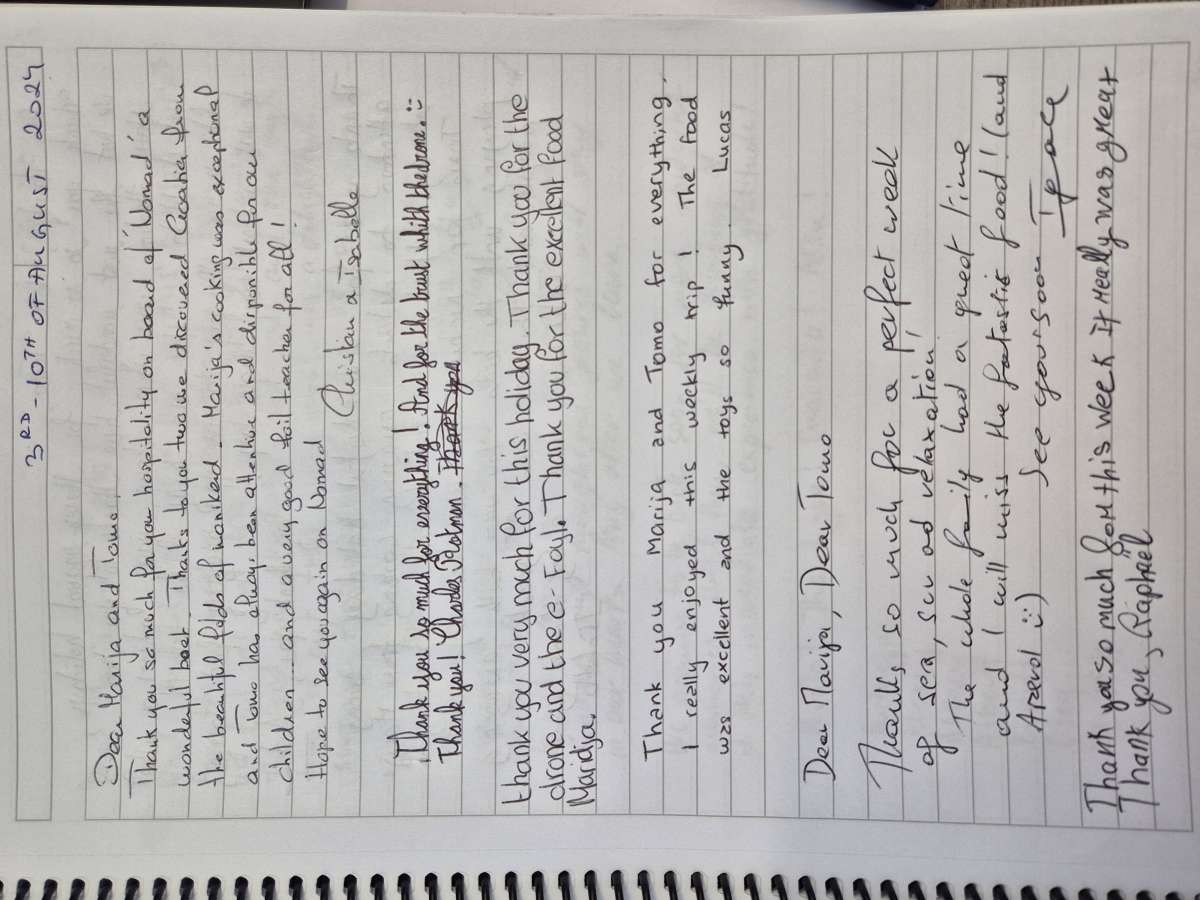 3RD - 10TH OF AUGUST 2024
Dear Marija and Tomo,
Thank you so much for your hospitality on board of "Nomad" a
wonderful boat. Thanks to you two we discovered Croatia from
the beautiful fields of Marija's cooking was exceptional
and Tomo has always been attentive and disponible for our
children and a very good foil teacher for all!
Hope to see you again on Nomad
Christian a Isabelle
Thank you so much for everything! And for the trust whith the drone. :)
Thank you! Charles
thank you very much for this holiday. Thank you for the
drone and the e-Foyl. Thank you for the excelent food
Maridja.
Thank you Marija and Tomo for everything.
I really enjoyed this weekly trip! The food
was excellent and the toys so funny. Lucas
Dear Marija, Dear Tomo
Thanks so much for a perfect week
of sea, sun ad relaxation!
The whole family had a great time
and I will miss the fatastic food! (and
Aperol :)) See you soon
Thank you so much for this week it really was great
Thank you, Raphaël